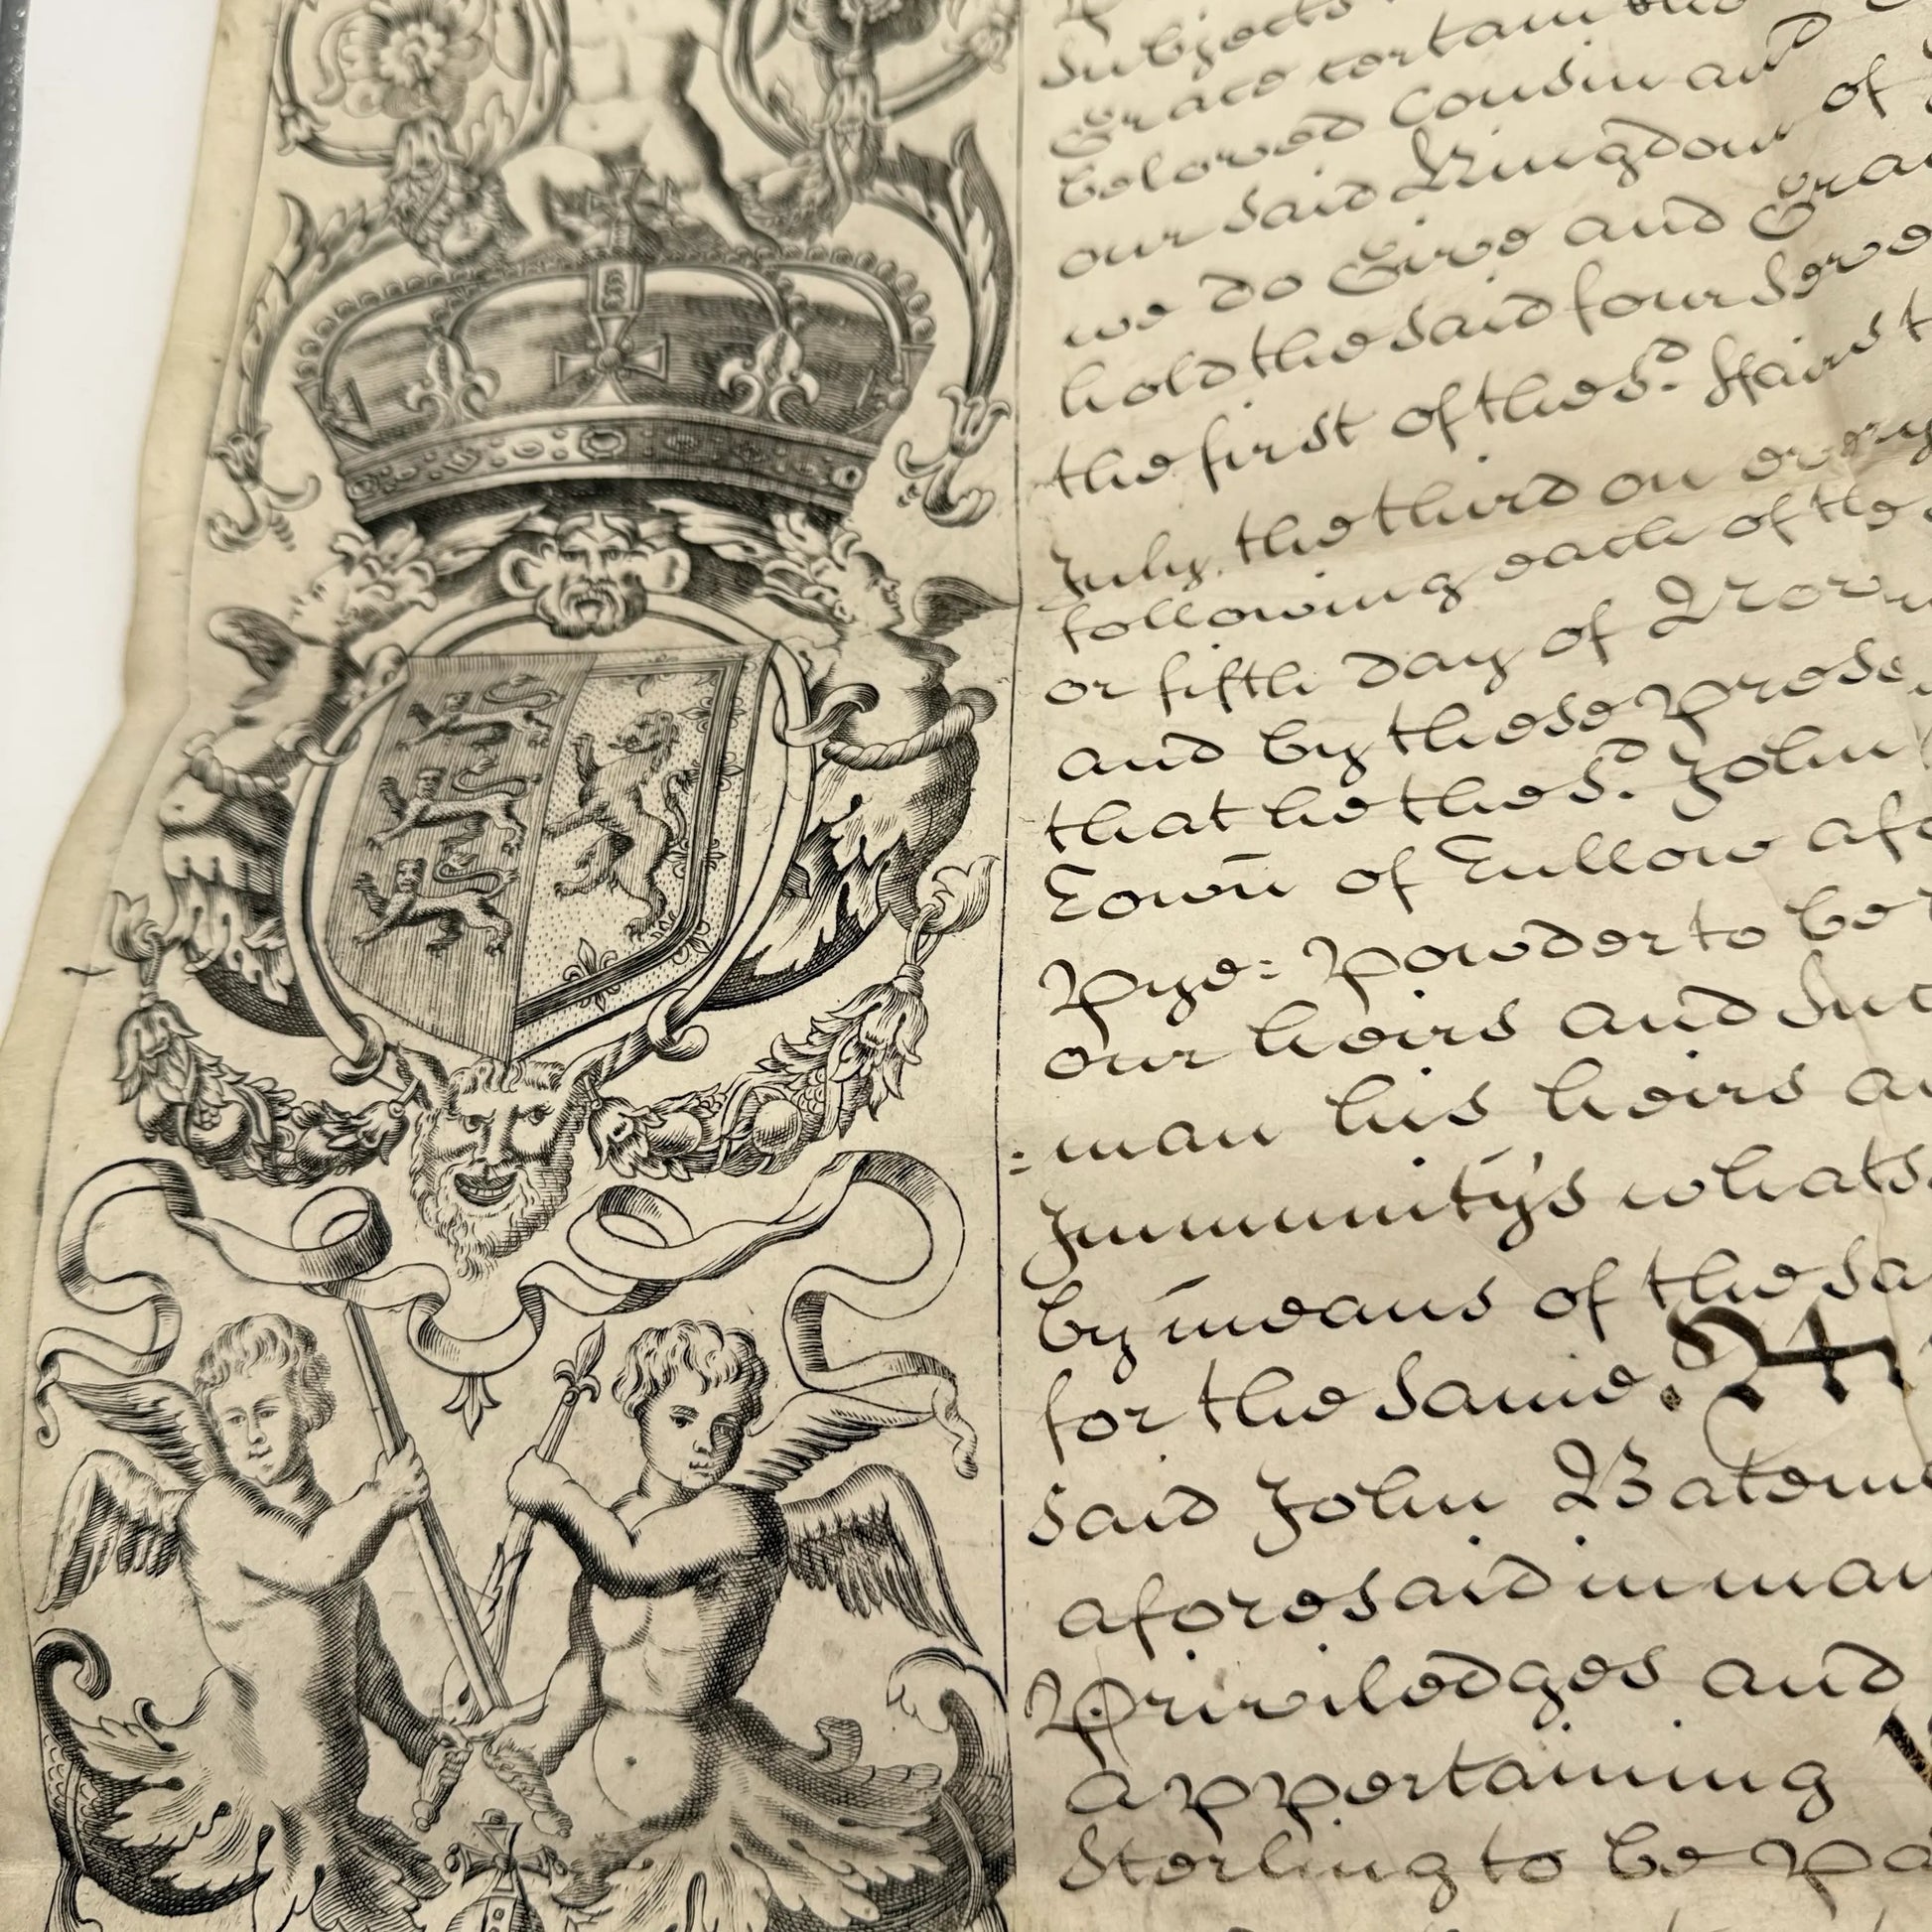 Subjects
Grace certain
beloved Cousin and
our said Kingdom of
we do Give and Gran
hold the said four seve
the first of the sd. ffairs t
July, the third on every
following each of the
or fifth day of Nov
and by these prese
that he the sd. John
Town of Tullow afo
Pye= Powder to be
our heirs and Suc
=man his heirs an
Immunity's whats
by means of the sa
for the same. N
said John Batem
aforesaid in man
Priviledges and
appertaining
Sterling to be pa